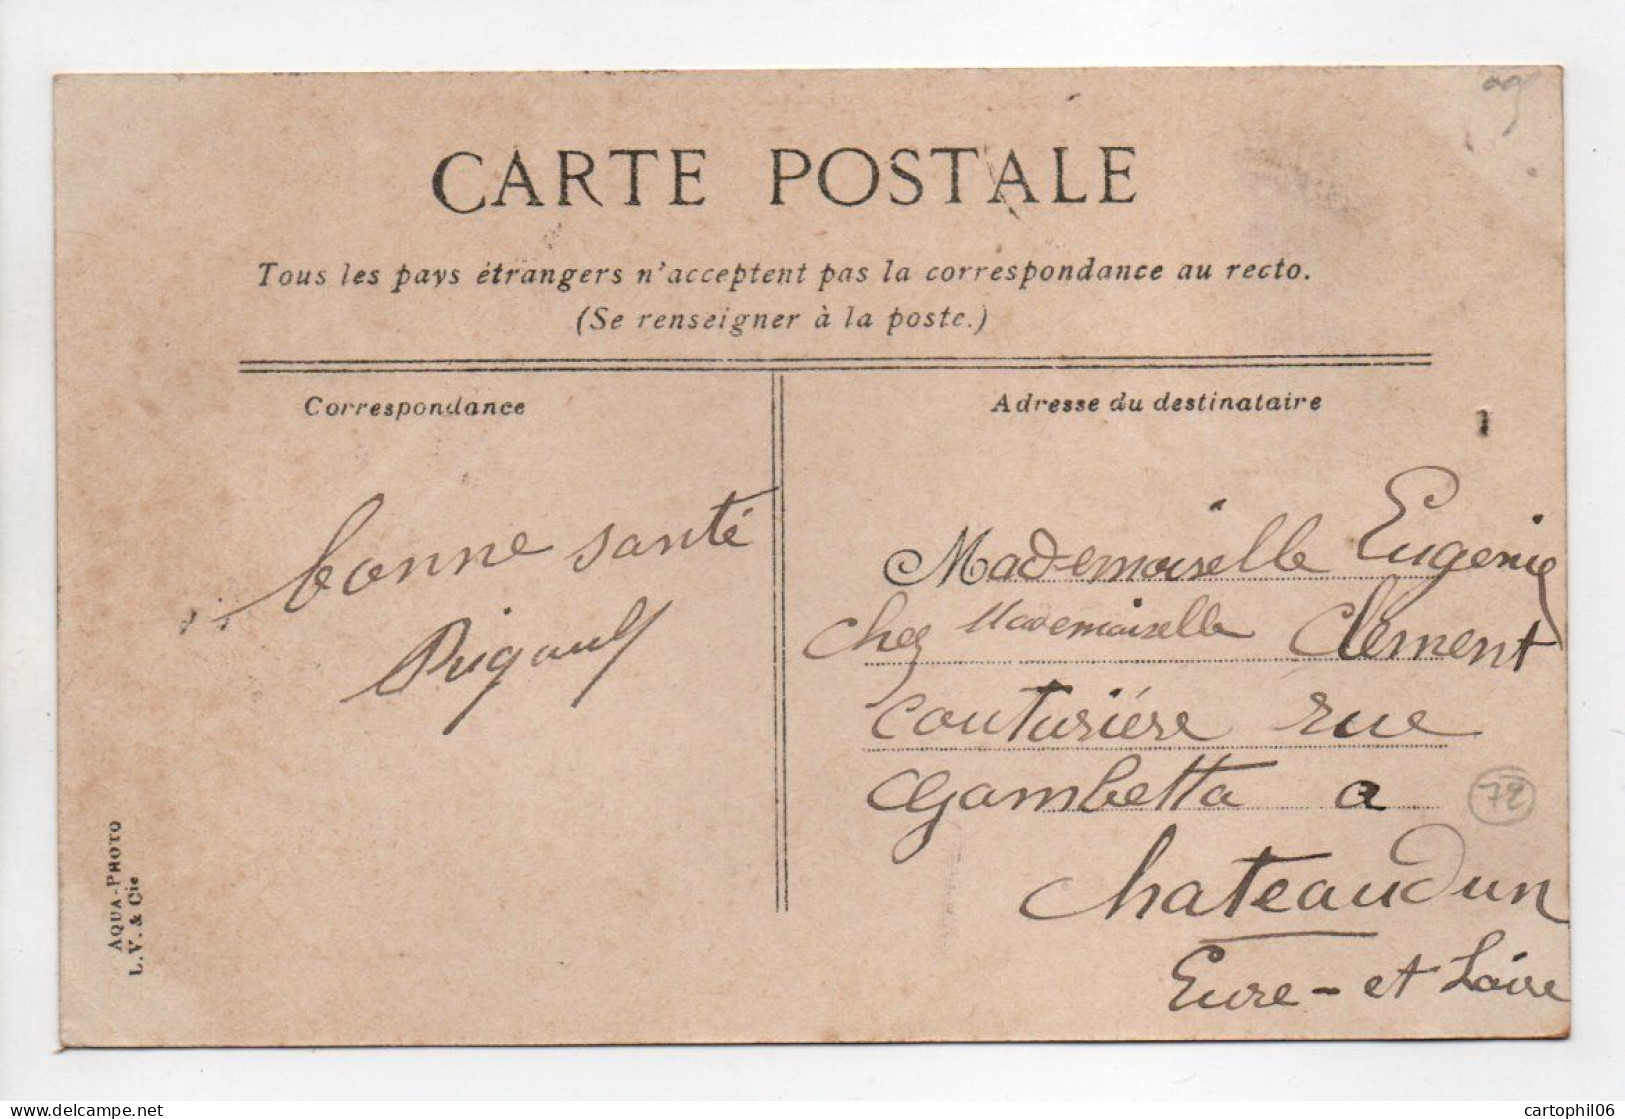 CARTE POSTALE
Tous les pays étrangers n'acceptent pas la correspondance au recto.
(Se renseigner à la poste.)
Correspondance
bonne santé
Rigault
Adresse du destinataire
Mademoiselle Eugenie
chez Mademoiselle Clément
couturiére rue
Gambetta a
Chateaudun
Eure-et Loire
72
AQUA-PHOTO
L. V. & Cie
cartophil06